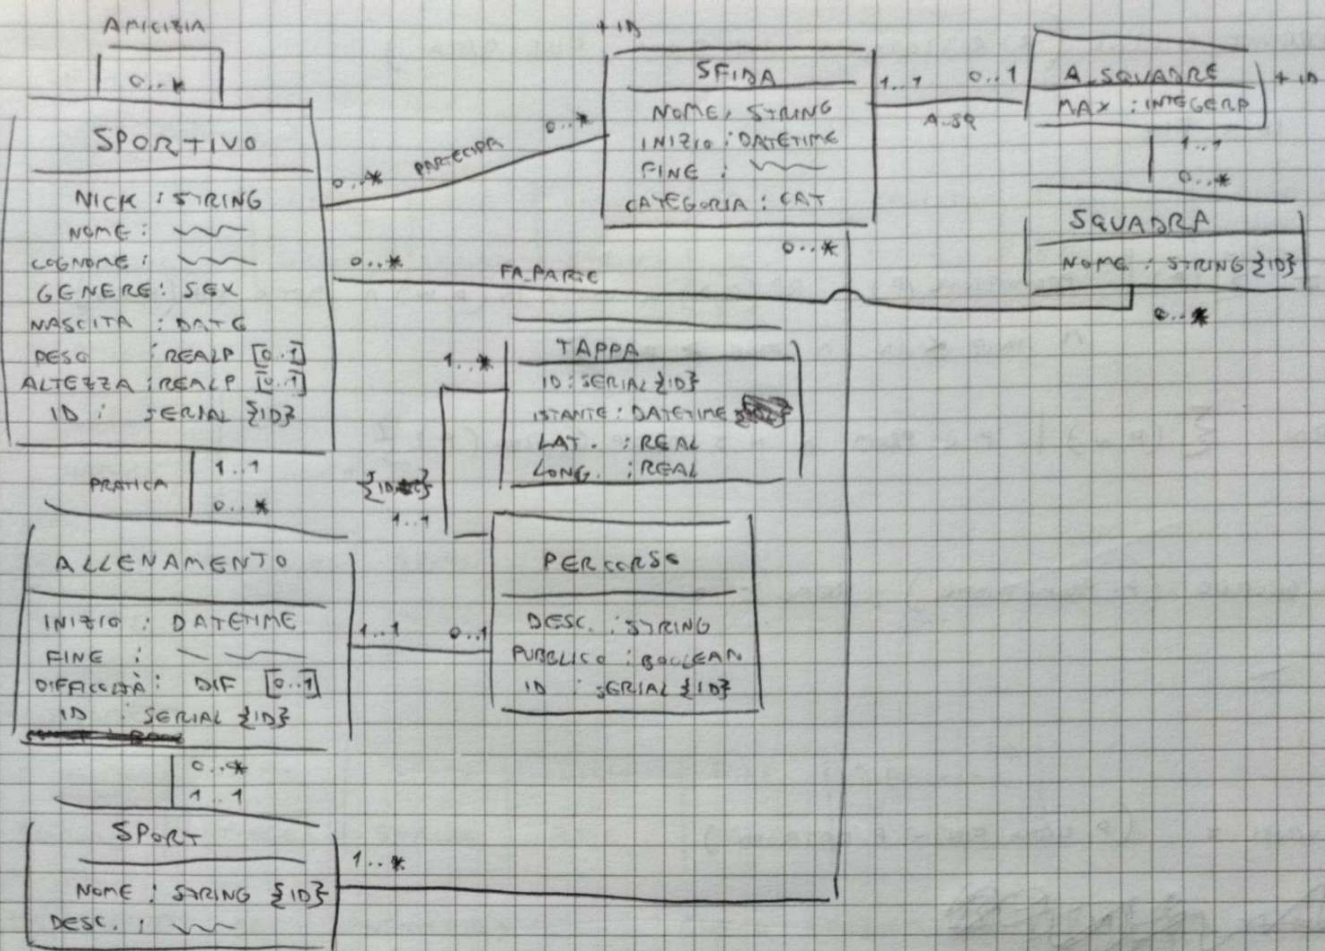 AMICIZIA
0..*
SPORTIVO
NICK : STRING
NOME :
COGNOME :
GENERE : SEX
NASCITA : DATE
PESO : REALP [0..1]
ALTEZZA : REALP [0..1]
ID : SERIAL {ID}
0..* PARTECIPA 0..*
+ ID
SFIDA
NOME : STRING
INIZIO : DATETIME
FINE :
CATEGORIA : CAT
1..1 0..1
A_SQ
A_SQUADRE
MAX : INTEGERP
+ ID
1..1
0..*
SQUADRA
NOME : STRING {ID}
0..*
0..* FA_PARTE
0..*
TAPPA
ID : SERIAL {ID}
ISTANTE : DATETIME
LAT. : REAL
LONG. : REAL
1..*
1..1
PRATICA
1..1
0..*
ALLENAMENTO
INIZIO : DATETIME
FINE :
DIFFICOLTÀ : DIF [0..1]
ID : SERIAL {ID}
1..1 0..1
PERCORSO
DESC. : STRING
PUBBLICO : BOOLEAN
ID : SERIAL {ID}
0..*
1..1
SPORT
NOME : STRING {ID}
DESC. :
1..*